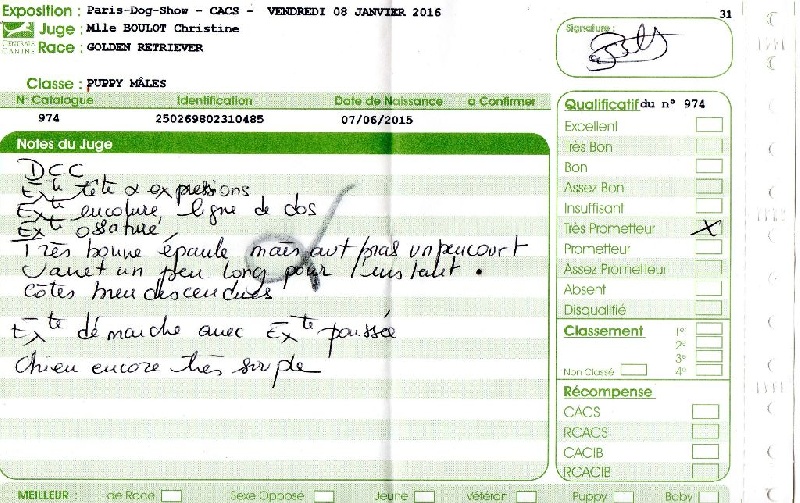 Exposition : Paris-Dog-Show - CACS - VENDREDI 08 JANVIER 2016
31
Juge : Mlle BOULOT Christine
CENTRALE CANINE
Race : GOLDEN RETRIEVER
Signature :
Classe : PUPPY MÂLES
N° Catalogue Identification Date de Naissance à Confirmer
974 250269802310485 07/06/2015
Notes du Juge
DCC
Exte tête & expressions
Exte encolure, ligne de dos
Exte ossature
Très bonne épaule mais avt bras un peu court
Jarret un peu long pour l'instant.
Côtes bien descendues
Exte démarche avec Exte poussée
Chien encore très souple
Qualificatif du n° 974
Excellent
Très Bon
Bon
Assez Bon
Insuffisant
Très Prometteur X
Prometteur
Assez Prometteur
Absent
Disqualifié
Classement 1°
2°
3°
Non Classé 4°
Récompense
CACS
RCACS
CACIB
RCACIB
MEILLEUR : de Race Sexe Opposé Jeune Vétéran Puppy Baby